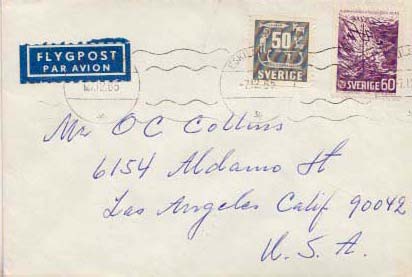 FLYGPOST
PAR AVION
50
SVERIGE
SVERIGE 60
12.65
-7.12.65
Mr O C Collins
6154 Aldamo St
Los Angeles Calif 90042
U.S.A.